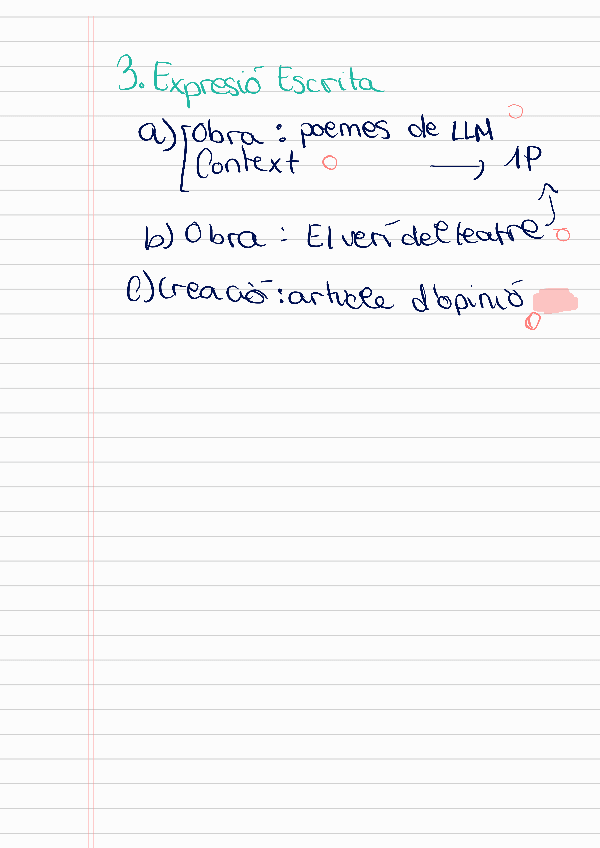 3. Expresió Escrita
a) Obra : poemes de LLM
Context → 1P
b) Obra : El verí del teatre
C) Creació : article d'opinió